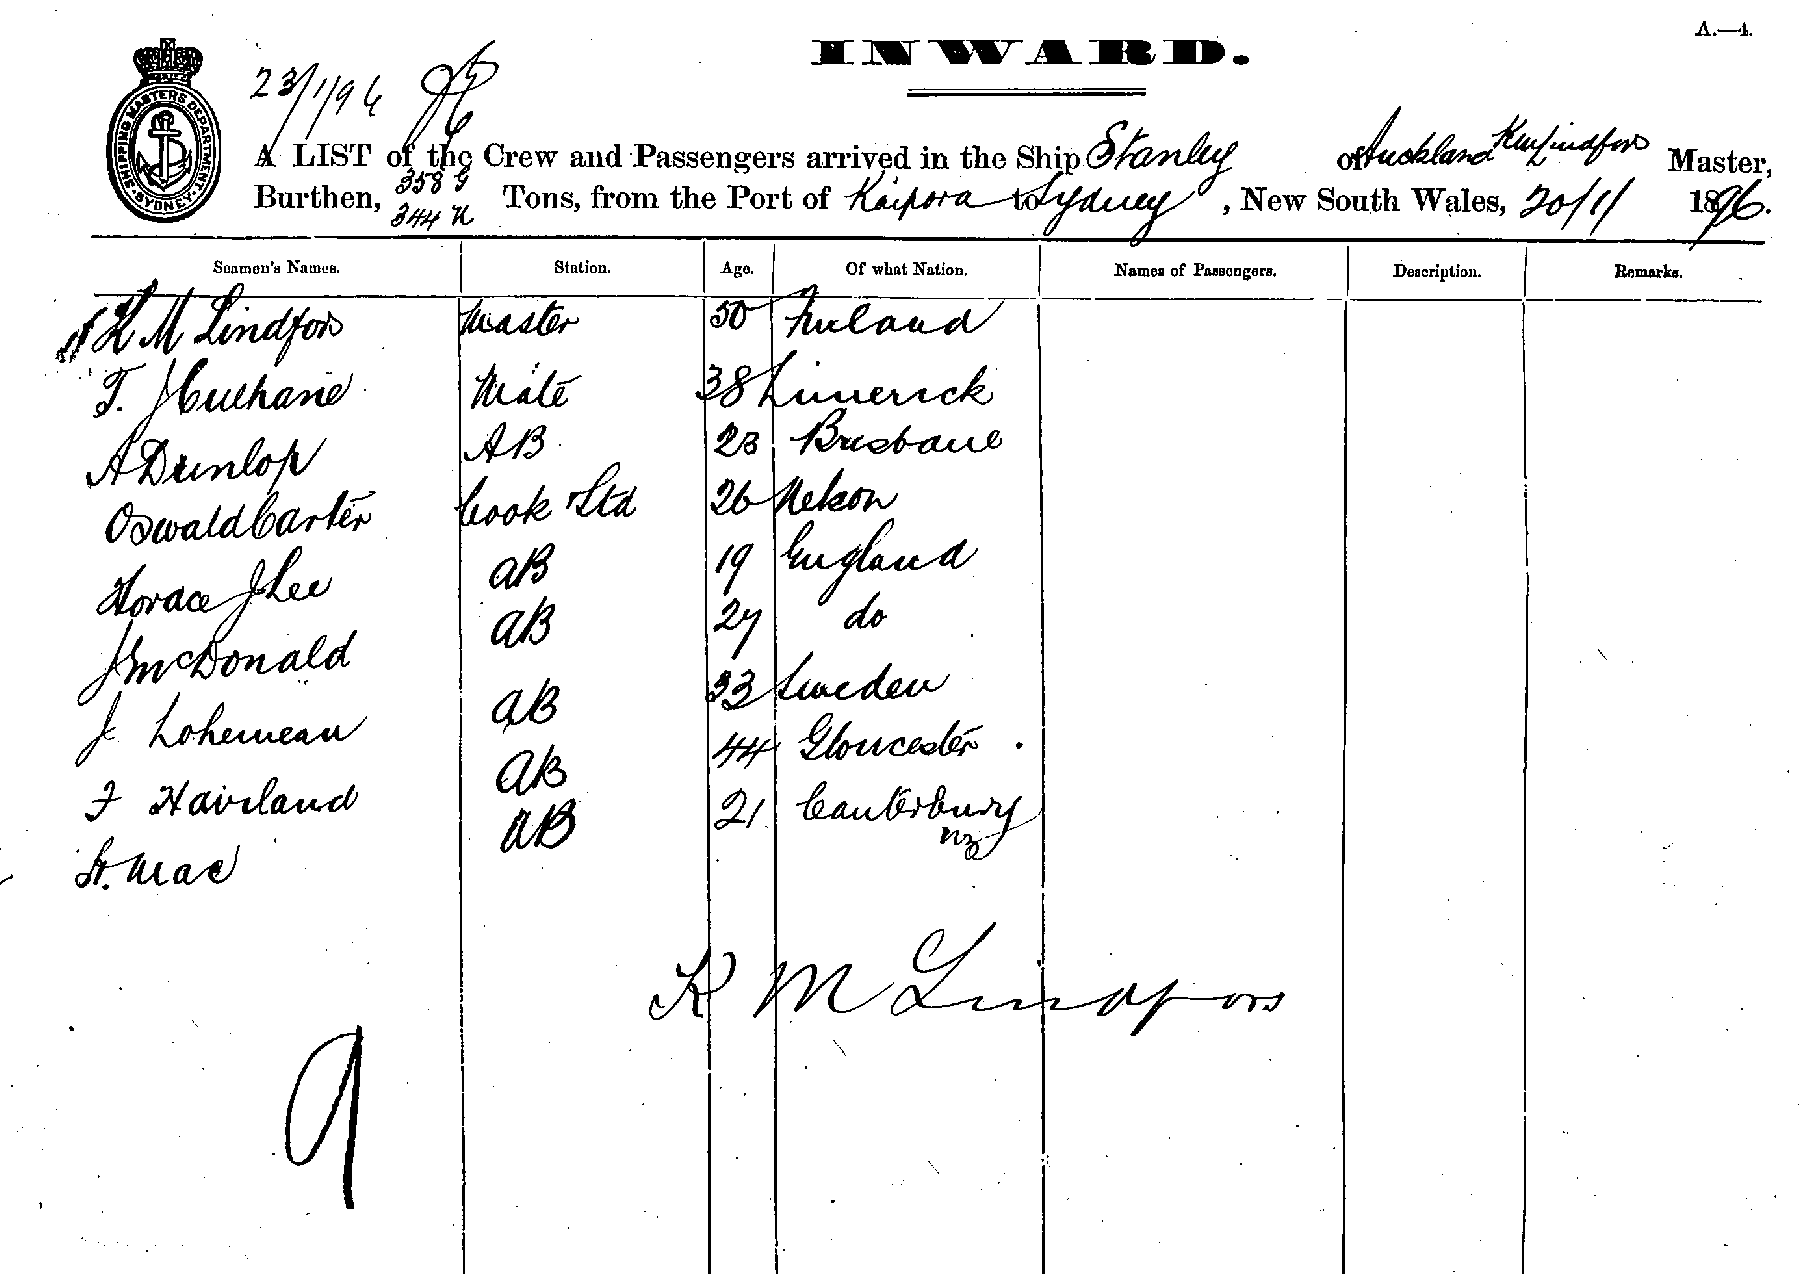 A.—4.
INWARD.
SHIPPING MASTERS DEPARTMENT. SYDNEY.
23/1/96
A LIST of the Crew and Passengers arrived in the Ship Stanley of Auckland K M Lindfors Master,
Burthen, 358 G 344 N Tons, from the Port of Kaipora to Sydney, New South Wales, 20/1/ 1896.
Seamen's Names. Station. Age. Of what Nation. Names of Passengers. Description. Remarks.
K M Lindfors Master 50 Finland
T. J Culhane Mate 38 Limerick
A Dunlop AB 23 Brisbane
Oswald Carter Cook & Std 26 Nelson
Horace J Lee AB 19 England
J McDonald AB 27 do
J AB 33 Sweden
F Haviland AB 44 Gloucester
Mac AB 21 Canterbury
NZ
K M Lindfors
9